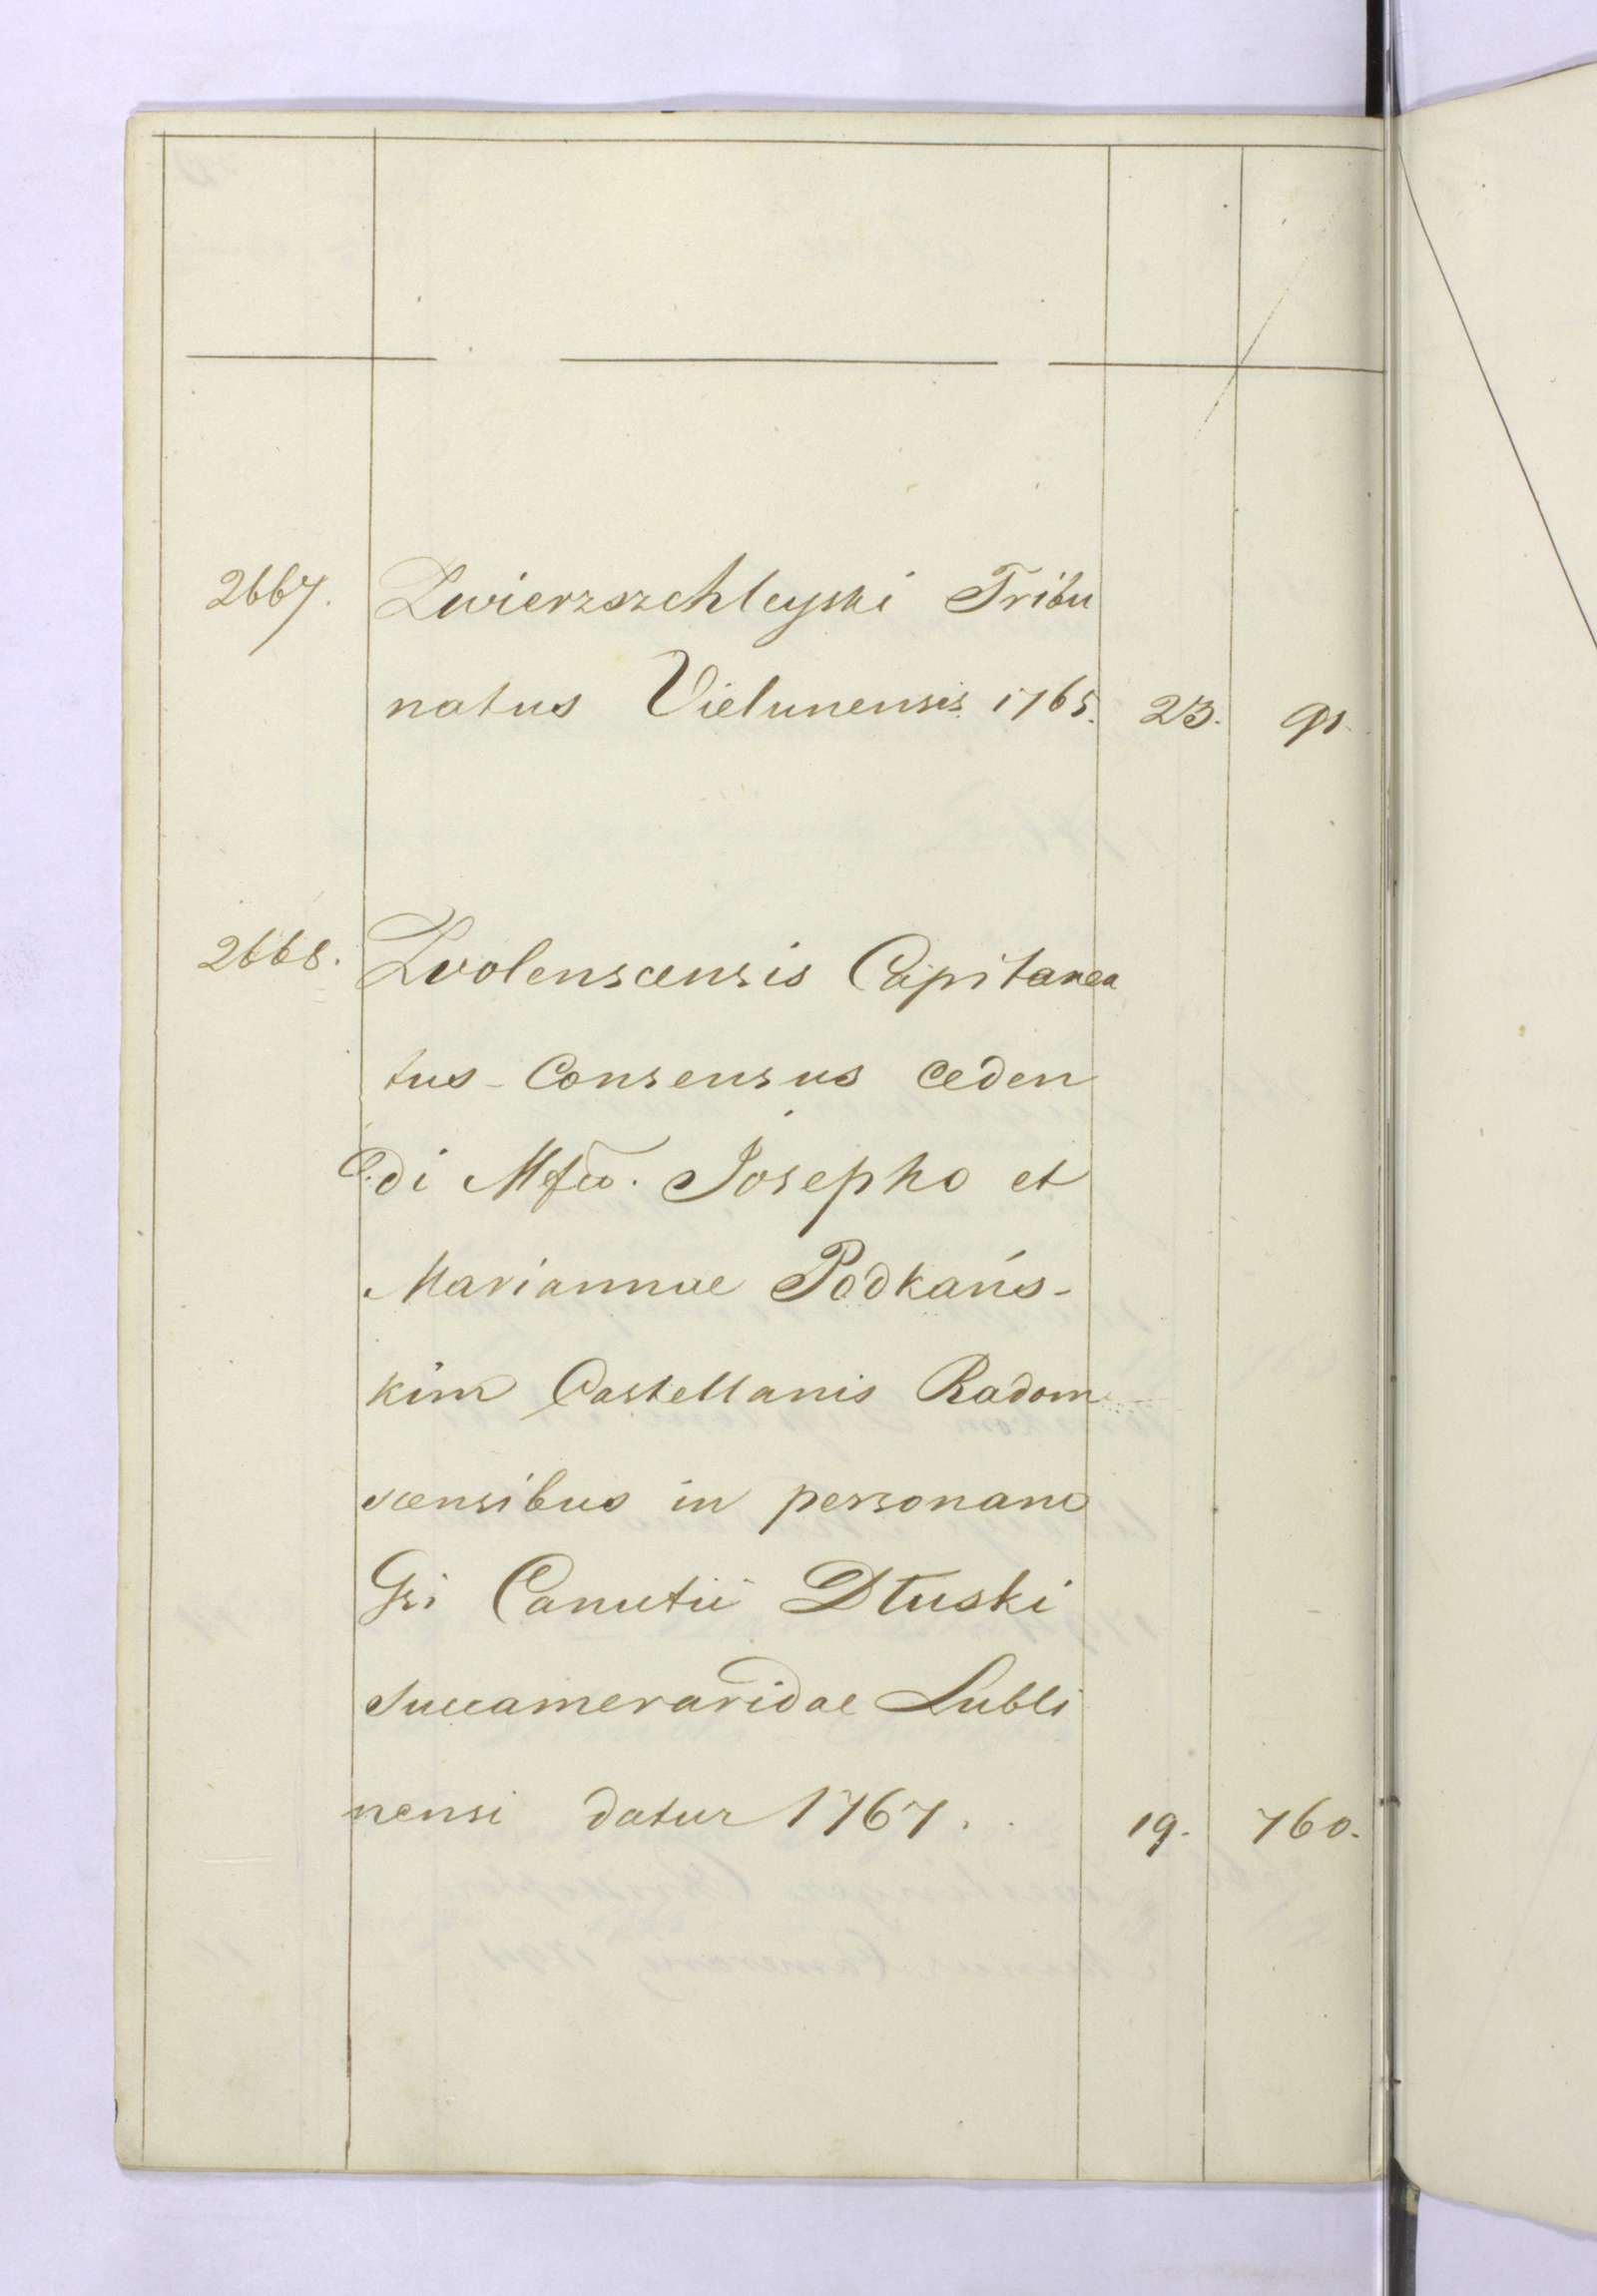 2667. Zwierzszchleyski Tribu
natus Vielunensis 1765. 23. 91.
2668. Zwolenscensis Capitanea
tus - Consensus ceden
di Mfco. Josepho et
Mariannae Podkańs-
kim Castellanis Radom
scensibus in personam
Gsi Canutii Dłuski
Succameraridae Lubli
nensi datur 1767. . 19. 760.